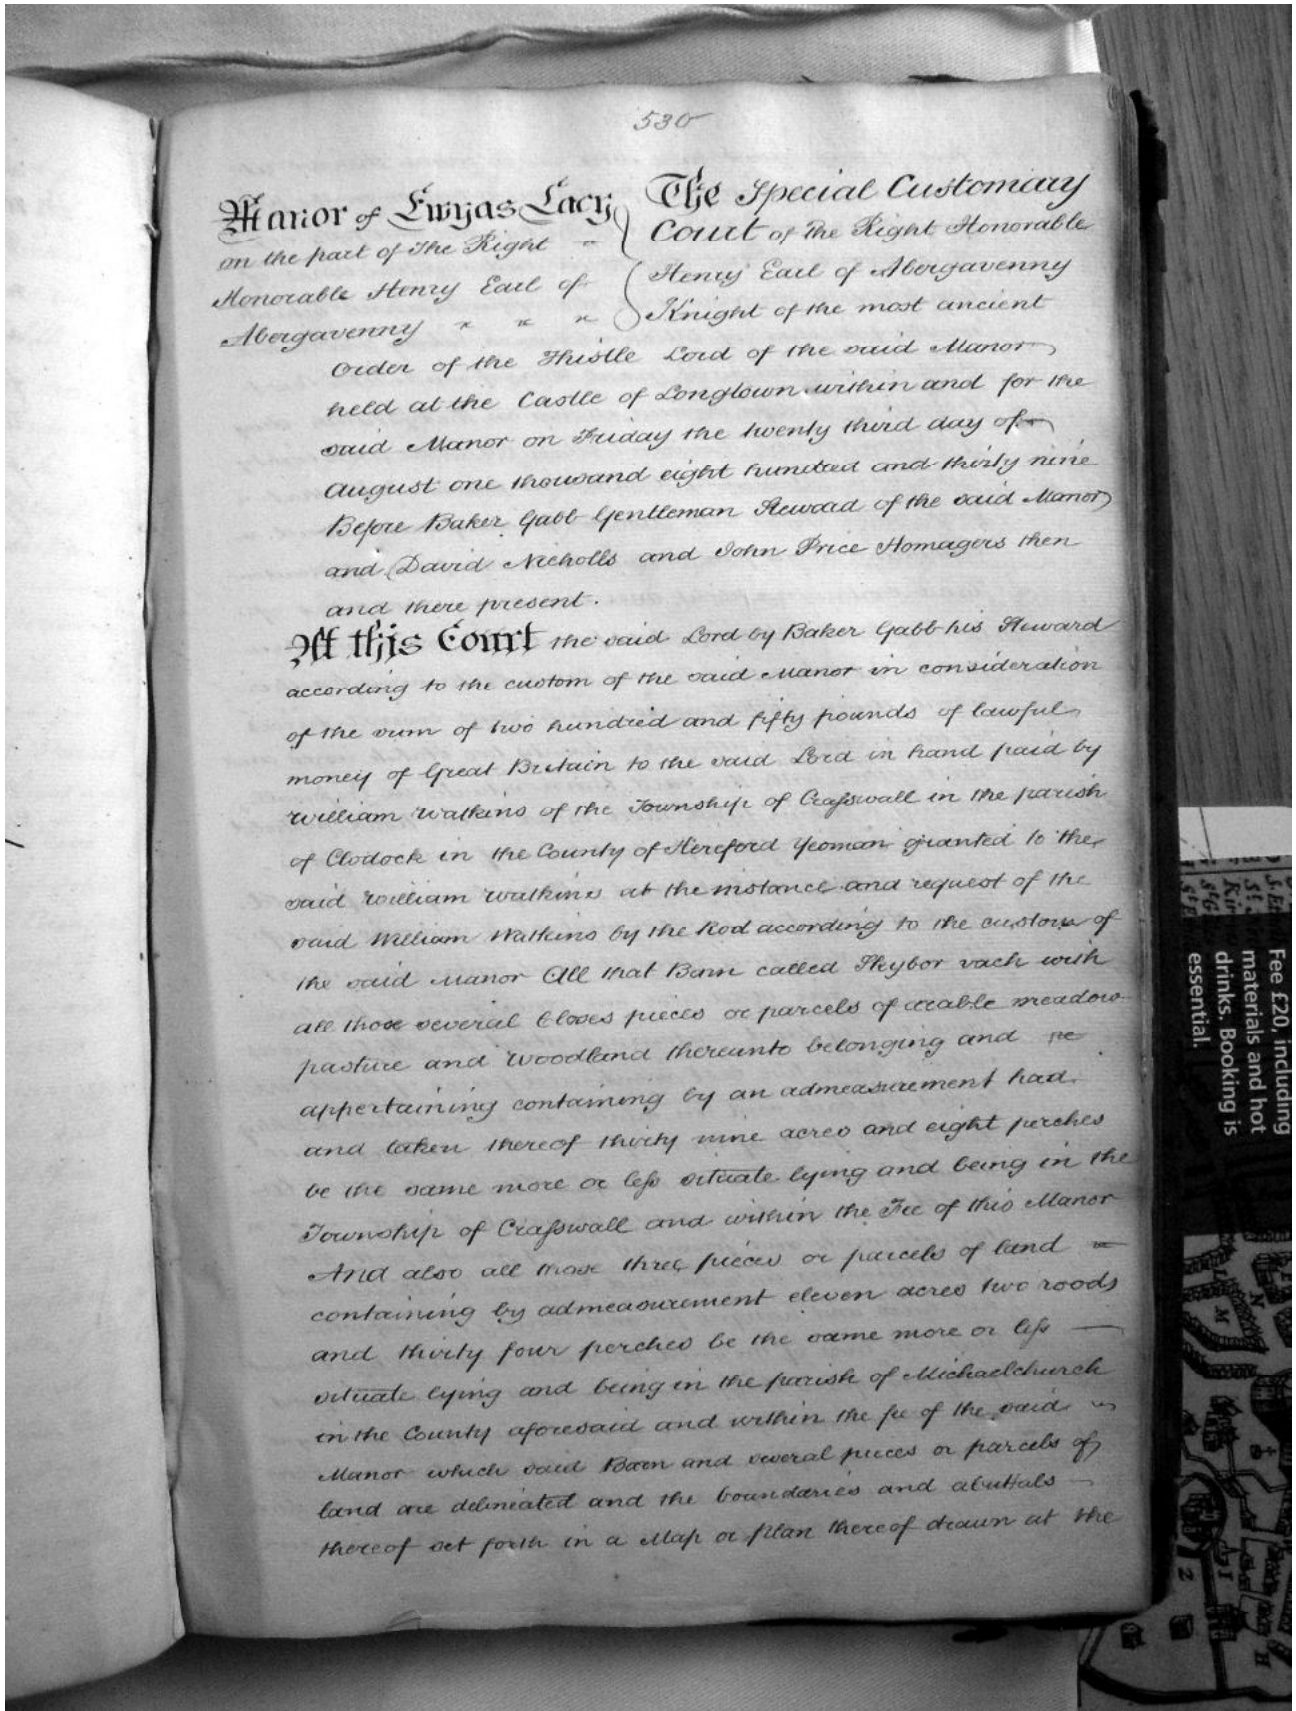 530
Manor of Ewyas Lacy
on the part of the Right
Honorable Henry Earl of
Abergavenny
The Special Customary
Court of the Right Honorable
Henry Earl of Abergavenny
Knight of the most ancient
Order of the Thistle Lord of the said Manor
held at the Castle of Longtown within and for the
said Manor on Friday the twenty third day of
August one thousand eight hundred and thirty nine
Before Baker Gabb Gentleman Steward of the said Manor
and David Nicholls and John Price Homagers then
and there present.
At this Court the said Lord by Baker Gabb his Steward
according to the custom of the said Manor in consideration
of the sum of two hundred and fifty pounds of lawful
money of Great Britain to the said Lord in hand paid by
William Watkins of the Township of Crasswall in the parish
of Clodock in the County of Hereford Yeoman granted to the
said William Watkins at the instance and request of the
said William Watkins by the Rod according to the custom of
the said Manor All that Barn called Skybor vach with
all those several Closes pieces or parcels of arable meadow
pasture and Woodland thereunto belonging and
appertaining containing by an admeasurement had
and taken thereof thirty nine acres and eight perches
be the same more or less situate lying and being in the
Township of Crasswall and within the Fee of this Manor
And also all those three pieces or parcels of land
containing by admeasurement eleven acres two roods
and thirty four perches be the same more or less
situate lying and being in the parish of Michaelchurch
in the County aforesaid and within the fee of the said
Manor which said Barn and several pieces or parcels of
land are delineated and the boundaries and abuttals
thereof set forth in a Map or plan thereof drawn at the
Fee £20, including
materials and hot
drinks. Booking is
essential.